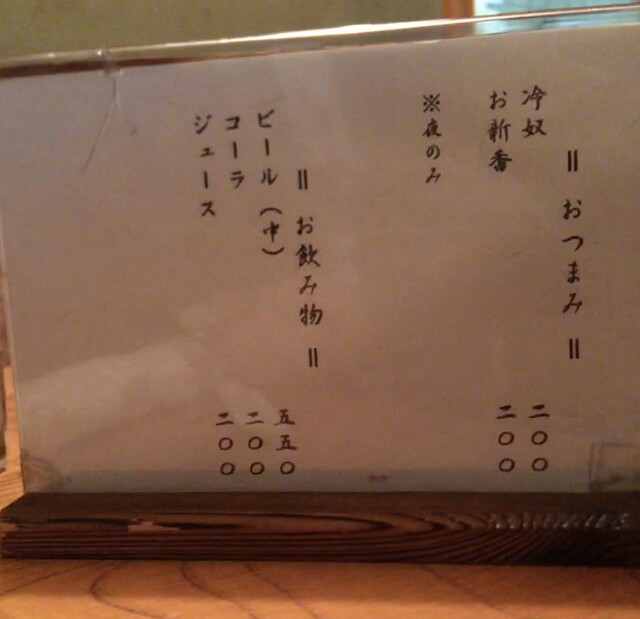 ＝ おつまみ ＝
冷奴 二〇〇
お新香 二〇〇
※夜のみ
＝ お飲み物 ＝
ビール（中） 五五〇
コーラ 二〇〇
ジュース 二〇〇